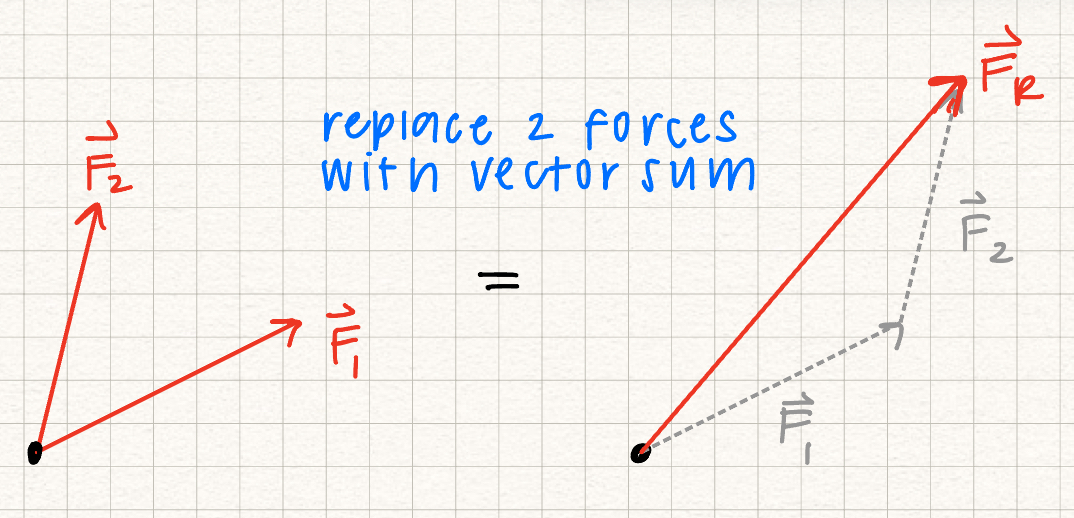 F⃗₂
F⃗₁
replace 2 forces
with vector sum
=
F⃗R
F⃗₂
F⃗₁